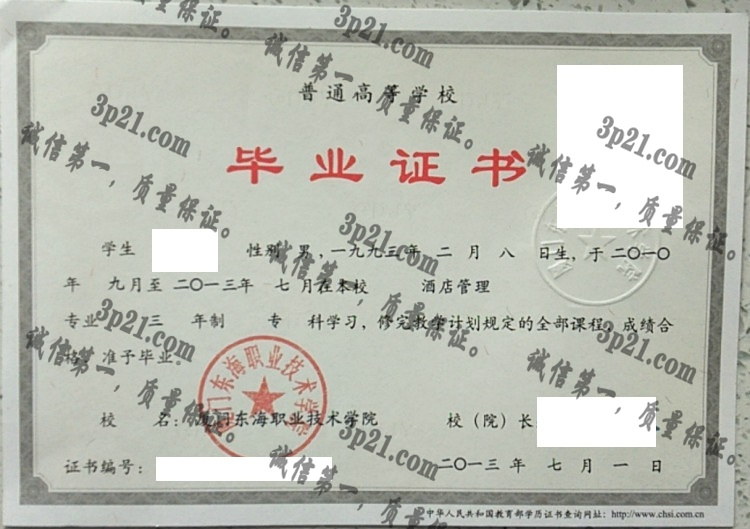 普通高等学校
毕业证书
学生 性别 男,一九九三年 二 月 八 日生,于二〇一〇
年 九月至二〇一三年 七月在本校 酒店管理
专业 三 年制 专 科学习,修完教学计划规定的全部课程,成绩合
格,准予毕业。
厦门东海职业技术学院
校 名:厦门东海职业技术学院 校(院)长:
证书编号: 二〇一三 年 七 月 一 日
中华人民共和国教育部学历证书查询网址:http://www.chsi.com.cn
3p21.com
诚信第一,质量保证。
3p21.com
诚信第一,质量保证。
3p21.com
诚信第一,质量保证。
3p21.com
诚信第一,质量保证。
3p21.com
诚信第一,质量保证。
3p21.com
诚信第一,质量保证。
3p21.com
诚信第一,质量保证。
3p21.com
诚信第一,质量保证。